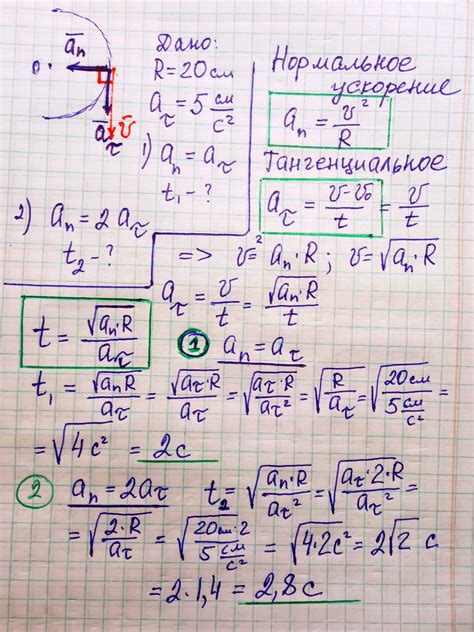 Дано:
R = 20 см
a_τ = 5 см/с²
1) a_n = a_τ
t₁ - ?
2) a_n = 2 a_τ
t₂ - ?
0 · a̅_n
a̅_τ v̅
Нормальное
ускорение
a_n = v²/R
Тангенциальное
a_τ = (v - v₀)/t = v/t
=> v² = a_n · R ; v = √(a_n · R)
a_τ = v/t = √(a_n · R)/t
t = √(a_n · R)/a_τ
① a_n = a_τ
t₁ = √(a_n R)/a_τ = √(a_τ · R)/a_τ = √(a_τ · R/a_τ²) = √(R/a_τ) = √(20 см/5 см/с²) =
= √(4 с²) = 2 с
② a_n = 2 a_τ t₂ = √(a_n · R/a_τ²) = √(a_τ · 2 · R/a_τ²) =
= √(2 · R/a_τ) = √(20 см · 2/5 см/с²) = √(4 · 2 с²) = 2√2 с
= 2 · 1,4 = 2,8 с